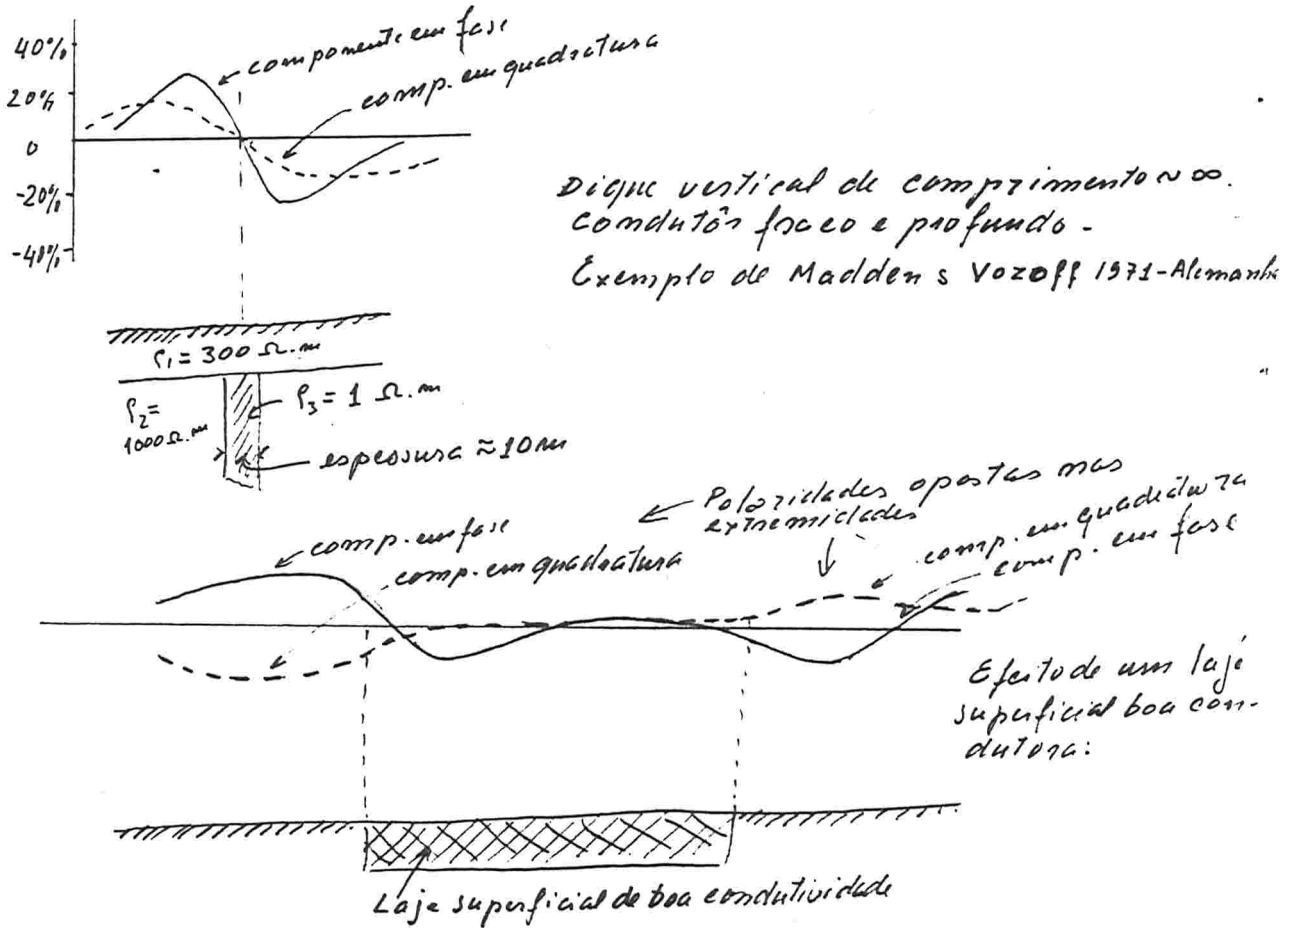 40%
20%
0
-20%
-40%
componente em fase
comp. em quadratura
Dique vertical de comprimento ~ ∞.
condutôr fraco e profundo -
Exemplo de Madden s Vozoff 1971-Alemanha
ρ₁ = 300 Ω.m
ρ₂ =
1000 Ω.m
ρ₃ = 1 Ω.m
espessura ≈ 10m
Polaridades opostas nas
extremidades
comp. em fase
comp. em quadratura
comp. em quadratura
comp. em fase
Efeito de um laje
superficial boa con-
dutora:
Laje superficial de boa condutividade